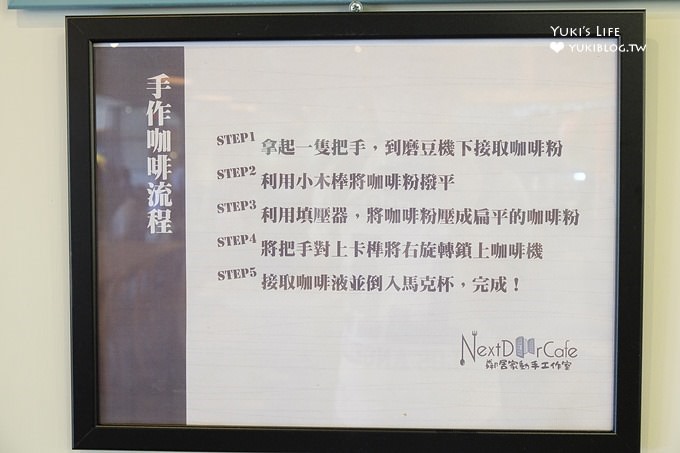 YUKI'S LIFE
YUKIBLOG.TW
手作咖啡流程
STEP1 拿起一隻把手，到磨豆機下接取咖啡粉
STEP2 利用小木棒將咖啡粉撥平
STEP3 利用填壓器，將咖啡粉壓成扁平的咖啡粉
STEP4 將把手對上卡榫將右旋轉鎖上咖啡機
STEP5 接取咖啡液並倒入馬克杯，完成！
NextDoorCafe
鄰居家動手工作室